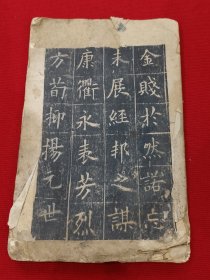 金賤於然諾忘
未展經邦之謀
康衢永表芳烈
方荀抑揚元世